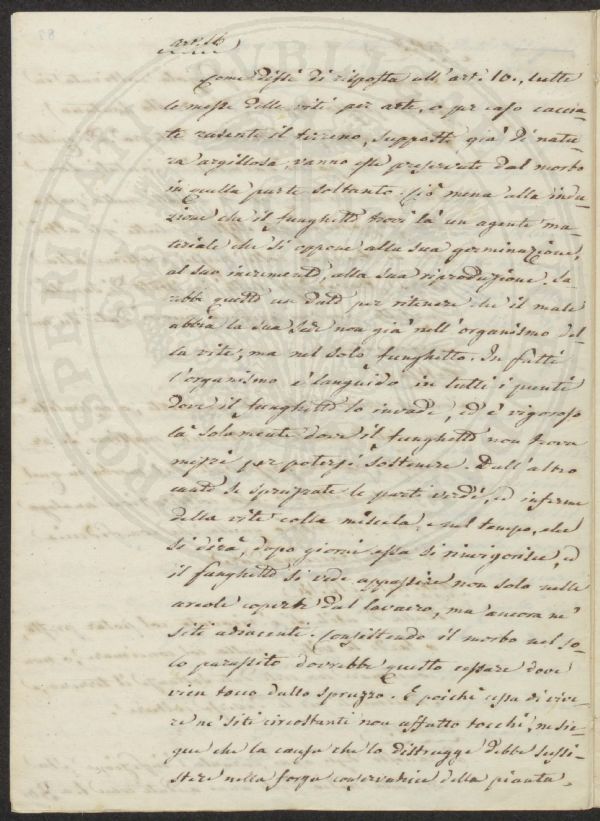 art. 16
Come dissi di risposta all'art: 10., tutte
le messe delle viti per arte, o per caso caccia-
te rasente il terreno, supposto già di natu-
ra argillosa, vanno esse preservate dal morbo
in quella parte soltanto. Ciò mena alla indu-
zione che il funghetto trovi là un agente ma-
teriale che si oppone alla sua germinazione,
al suo incremento, alla sua riproduzione. Sa-
rebbe questo un dato per ritenere che il male
abbia la sua sede non già nell'organismo del-
la vite, ma nel solo funghetto. In fatti
l'organismo è languido in tutti i punti
dove il funghetto lo invade, ed è vigoroso
là solamente dove il funghetto non trova
messi per potersi sostenere. Dall'altro
canto se spruzzate le parti verdi, ed inferme
della vite colla miscela, e nel tempo, che
si dirà, dopo giorni essa si rinvigorisce, ed
il funghetto si vede appassire non solo nelle
areole coperte dal lavacro, ma ancora ne'
siti adiacenti. Consistendo il morbo nel so-
lo parassito dovrebbe questo cessare dove
vien tocco dallo spruzzo. E poichè cessa di vive-
re ne' siti circostanti non affatto tocchi, ne sie-
gue che la causa che lo distrugge debbe sussi-
stere nella forza conservatrice della pianta,